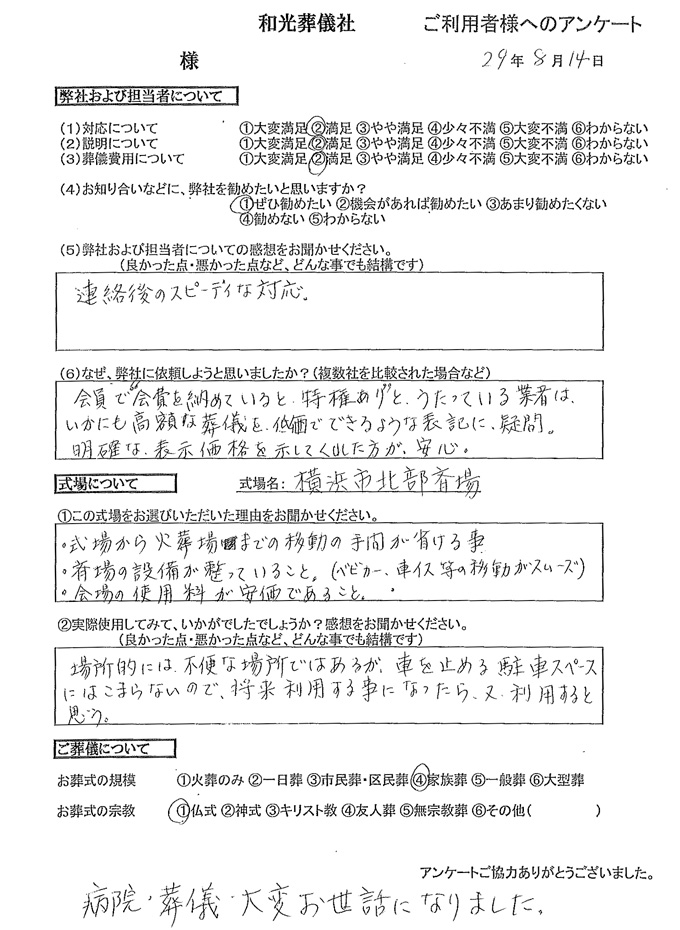 和光葬儀社 ご利用者様へのアンケート
様 29年8月14日
弊社および担当者について
(1)対応について ①大変満足②満足③やや満足④少々不満⑤大変不満⑥わからない
(2)説明について ①大変満足②満足③やや満足④少々不満⑤大変不満⑥わからない
(3)葬儀費用について ①大変満足②満足③やや満足④少々不満⑤大変不満⑥わからない
(4)お知り合いなどに、弊社を勧めたいと思いますか?
①ぜひ勧めたい②機会があれば勧めたい③あまり勧めたくない
④勧めない⑤わからない
(5)弊社および担当者についての感想をお聞かせください。
(良かった点・悪かった点など、どんな事でも結構です)
連絡後のスピーディな対応。
(6)なぜ、弊社に依頼しようと思いましたか?(複数社を比較された場合など)
会員で“会費を納めていると、特権あり”と、うたっている業者は、
いかにも高額な葬儀を、低価でできるような表記に、疑問。
明確な、表示価格を示してくれた方が、安心。
式場について 式場名:横浜市北部斎場
①この式場をお選びいただいた理由をお聞かせください。
・式場から火葬場までの移動の手間が省ける事
・斎場の設備が整っていること。(ベビカー、車イス等の移動がスムーズ)
・会場の使用料が安価であること。
②実際使用してみて、いかがでしたでしょうか?感想をお聞かせください。
(良かった点・悪かった点など、どんな事でも結構です)
場所的には、不便な場所ではあるが、車を止める駐車スペース
にはこまらないので、将来利用する事になったら、又、利用すると
思う。
ご葬儀について
お葬式の規模 ①火葬のみ②一日葬③市民葬・区民葬④家族葬⑤一般葬⑥大型葬
お葬式の宗教 ①仏式②神式③キリスト教④友人葬⑤無宗教葬⑥その他( )
アンケートご協力ありがとうございました。
病院・葬儀・大変お世話になりました。